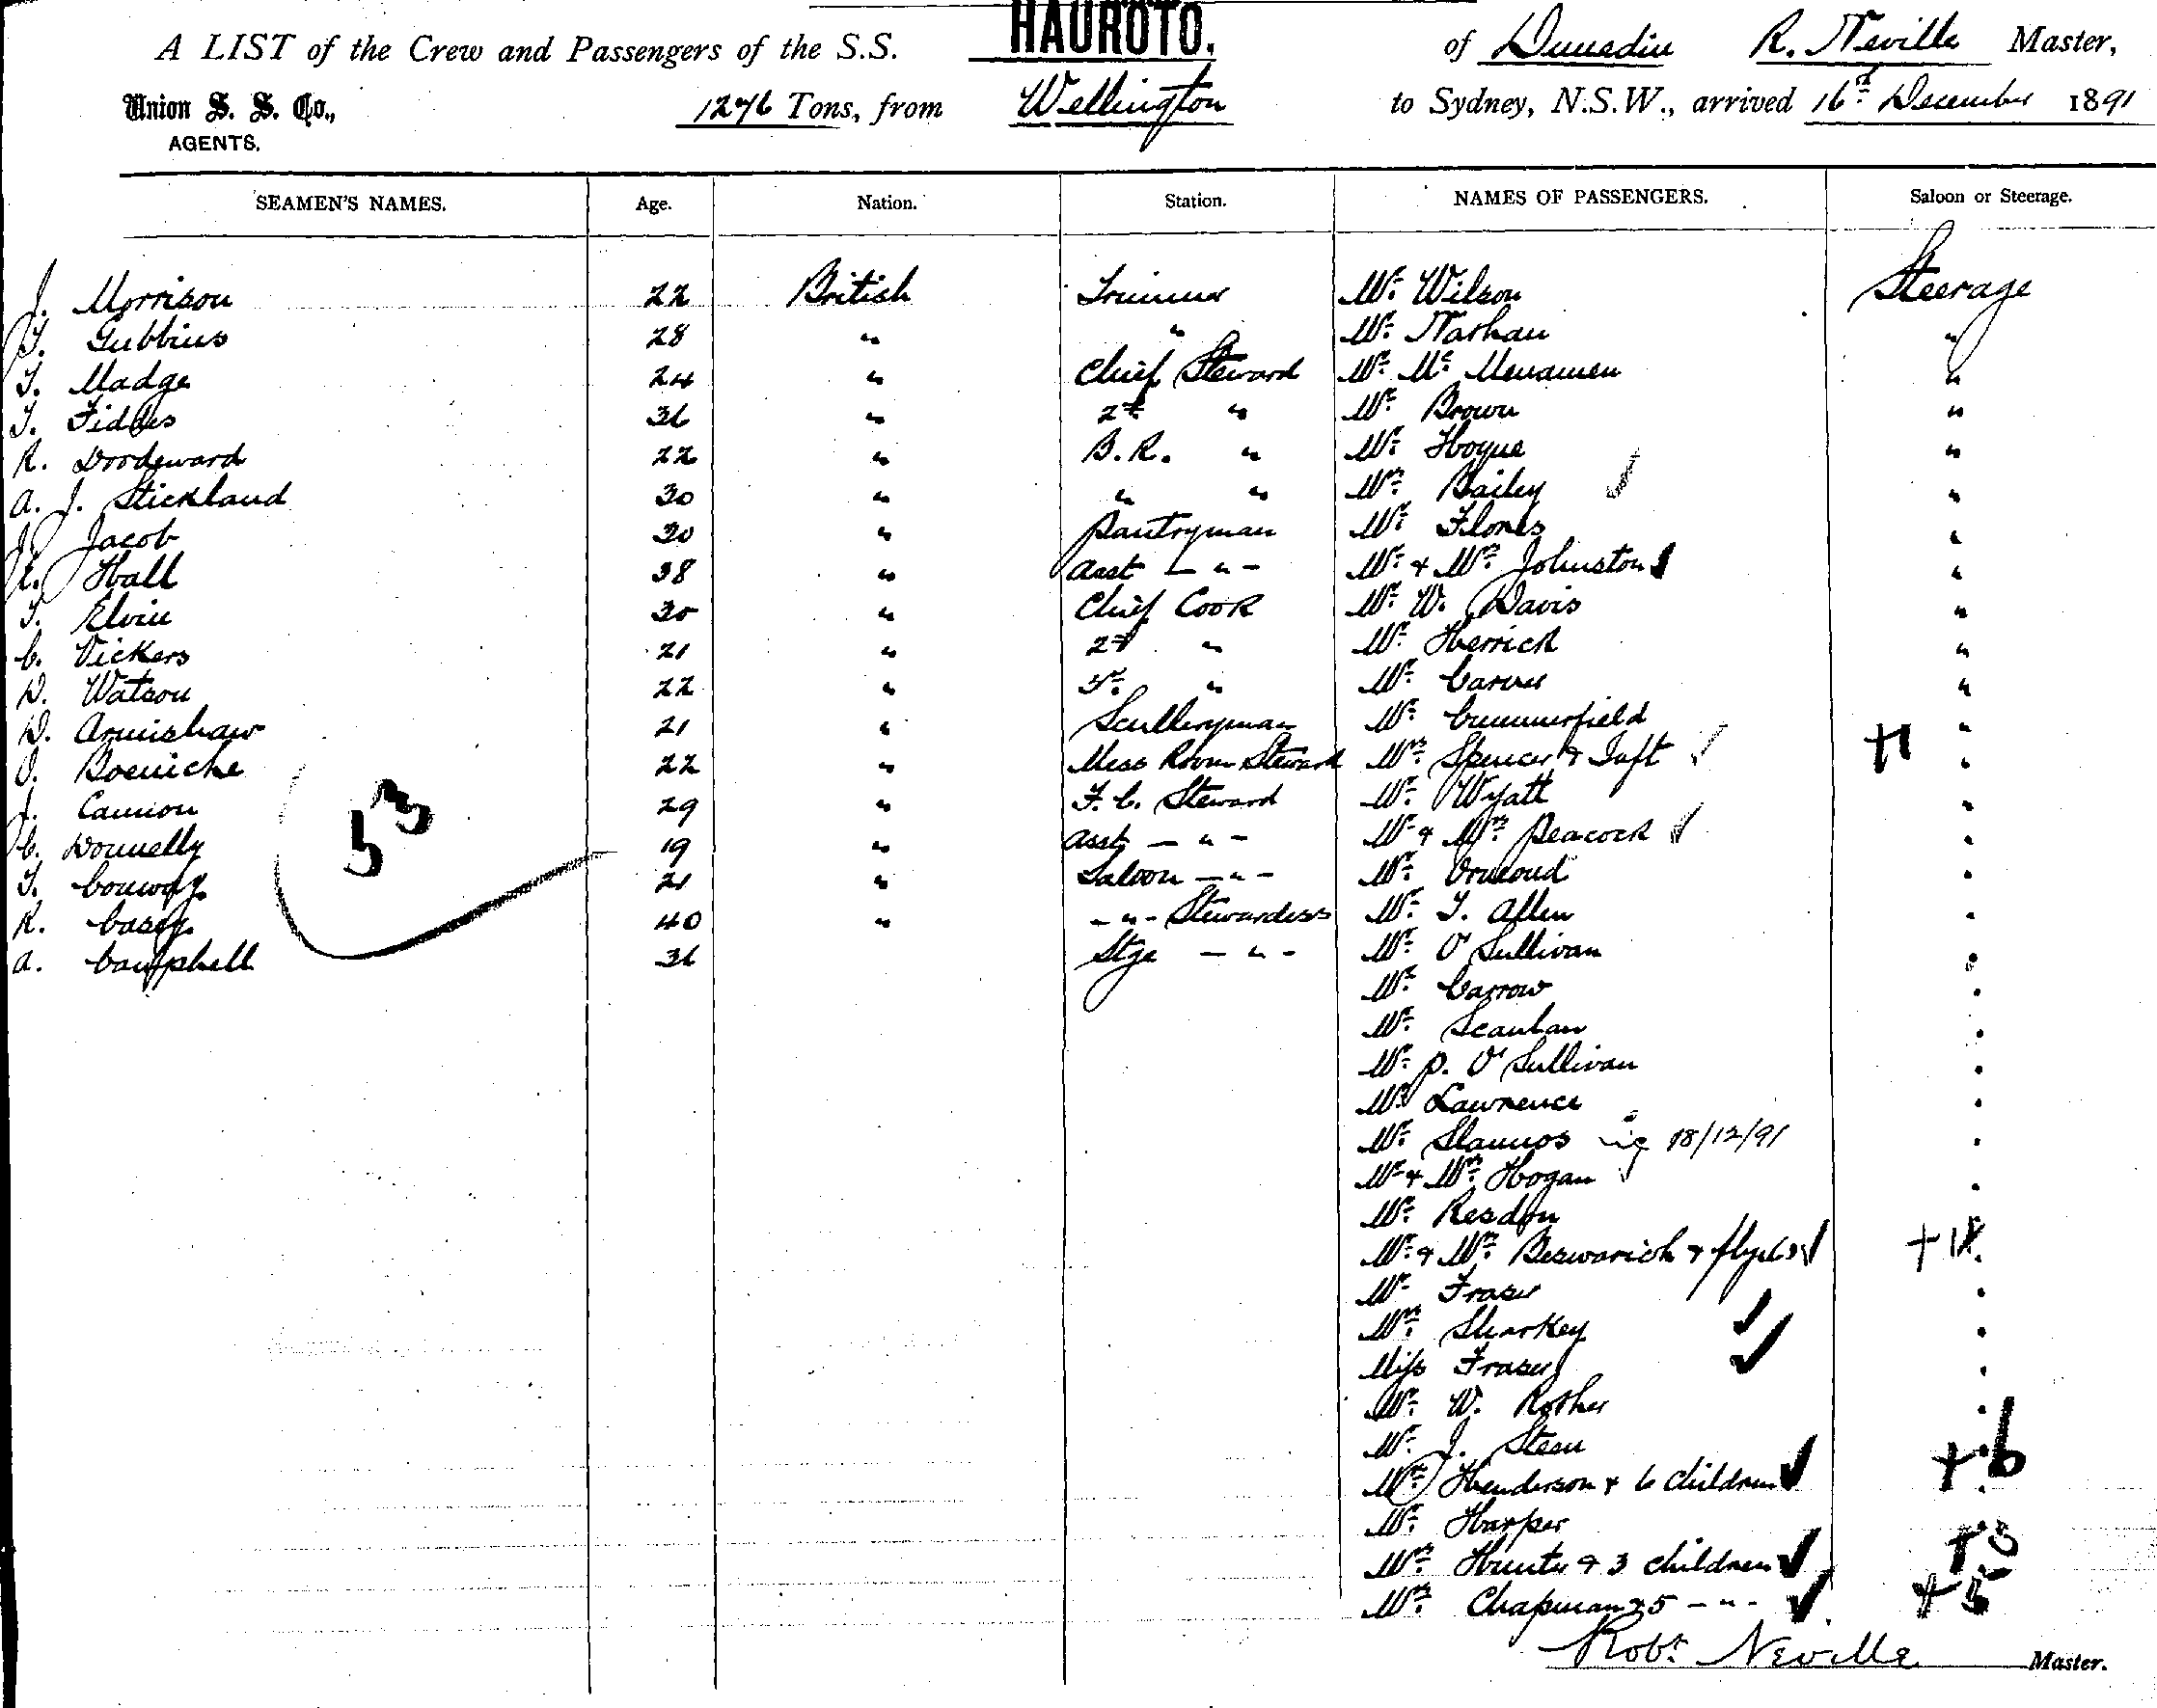 A LIST of the Crew and Passengers of the S.S. HAUROTO, of Dunedin R. Neville Master,
Union S. S. Co., 1276 Tons, from Wellington to Sydney, N.S.W., arrived 16th December 1891
AGENTS.
SEAMEN'S NAMES. Age. Nation. Station. NAMES OF PASSENGERS. Saloon or Steerage.
J. Morrison 22 British Trimmer Mr. Wilson Steerage
J. Gubbins 28 " " Mr. Nathan "
T. Madge 24 " Chief Steward Mr. Mc Menamen "
T. Fiddes 36 " 2nd " Mr. Brown "
R. Woodeward 22 " B.R. " Mr. Hogue "
A. J. Stickland 30 " " " Mrs. Bailey "
J. Jacob 20 " Pantryman Mr. Flores "
Hall 38 " Asst - " - Mr. & Mrs. Johnston "
T. Elvin 30 " Chief Cook Mr. W. Davis "
C. Vickers 21 " 2nd " Mr. Herrick "
D. Watson 22 " 3rd " Mr. "
D. Armishaw 21 " Sculleryman Mr. Cummerfield "
O. Boenicke 22 " Mess Room Steward Mrs. Spencer & Inft "
J. Cannon 29 " F.C. Steward Mr. Wyatt "
C. Donnelly 19 " Asst - " - Mr & Mrs. Peacock "
T. Conway 21 " Saloon - " - Mr. Ormond "
K. Casey 40 " - " - Stewardess Mr. T. Allen "
A. Campbell 36 Stge - " - Mr. O'Sullivan "
53
Mr. Carrow "
Mr. Scanlan "
Mr. P. O'Sullivan "
Mr. Lawrence "
Mr. Slannos 18/12/91 "
Mr & Mrs. Hogan "
Mr. Resdon
Mr. & Mrs. Beswarick &
Mr. Fraser "
Mrs. Sharkey "
Miss Fraser "
Mr. W. Rother "
Mr. J. Steen
Mrs. Henderson & 6 Children +6
Mr. Harper
Mrs. Hunter & 3 children +3
Mrs. Chapman & 5 - " - +5
Robt. Neville Master.